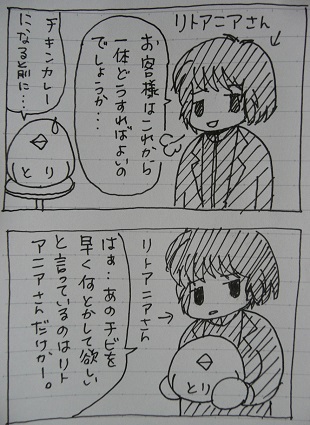 リトアニアさん
お客様はこれから
一体どうすればよいの
でしょうか…
チキンカレー
になる前に…
とり
リトアニアさん
はぁ…あのチビを
早く何とかして欲しい
と言っているのはリト
アニアさんだけかー。
とり